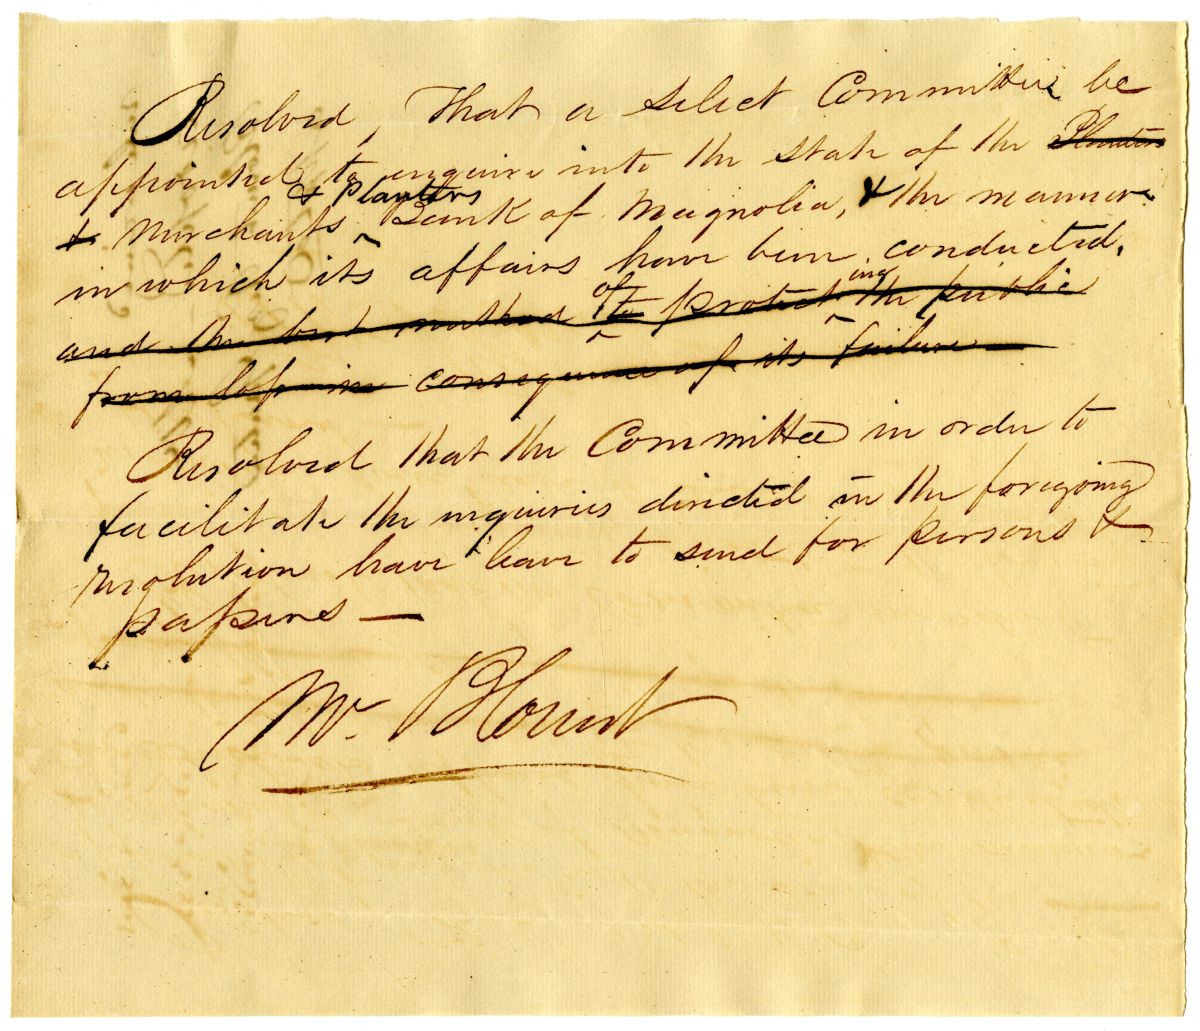 Resolved, That a select Committee be
appointed to enquire into the state of the Planters
& Merchants & Planters Bank of Magnolia, & the manner
in which its affairs have been conducted,
and the best method of to protecting the public
from loss in consequence of its failure
Resolved that the Committee in order to
facilitate the inquiries directed in the foregoing
resolution have leave to send for persons &
papers —
Mr. Blount